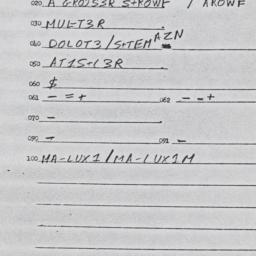 020 A GRO2S3R S+ROWE / AROWE
030 MUL-T3R
040 DOLOT3/S+TEM AZN
050 AT1S-L3R
060 $
061 - = + 062 - - +
070 -
090 - 091 -
100 MA-LUX1/MA-LUX1M